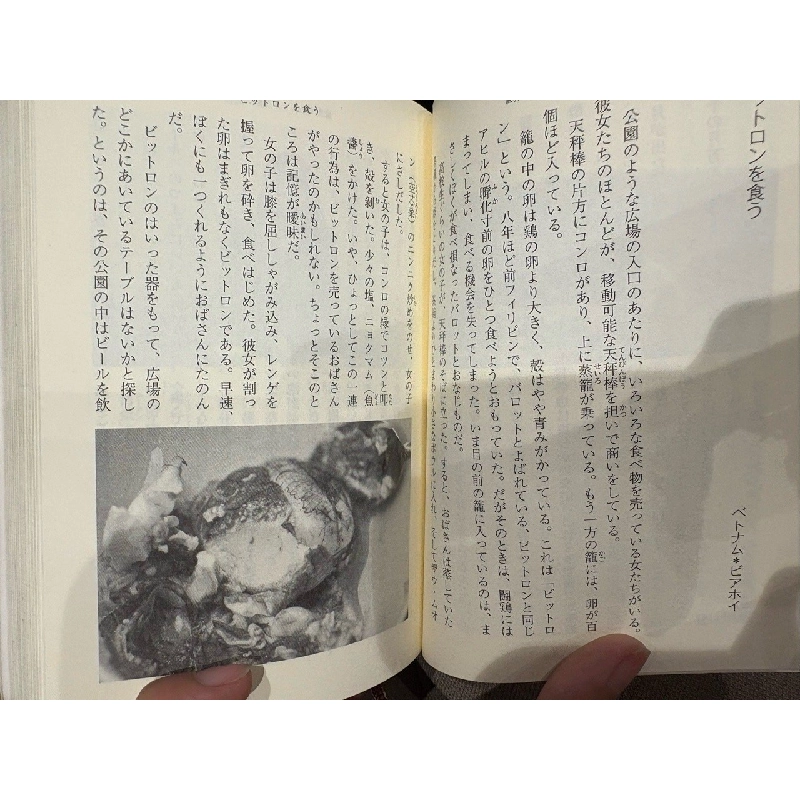 ットロンを食う
ベトナム*ビアホイ
公園のような広場の入口のあたりに、いろいろな食べ物を売っている女たちがいる。
彼女たちのほとんどが、移動可能な天秤棒を担いで商いをしている。
天秤棒の片方にコンロがあり、上に蒸籠が乗っている。もう一方の籠には、卵が百
個ほど入っている。
籠の中の卵は鶏の卵より大きく、殻はやや青みがかっている。これは「ビットロ
ン」という。八年ほど前フィリピンで、バロットとよばれている、ビットロンと同じ
アヒルの孵化寸前の卵をひとつ食べようとおもっていた。だがそのときは、闘鶏には
まってしまい、食べる機会を失ってしまった。いま目の前の籠に入っているのは、ま
さしくぼくが食べ損なったバロットとおなじものだ。
高校生ぐらいの女の子が、天秤棒のそばに立った。すると、おばさんは蒸していた
ビットロンを食う
のニンニク炒めをのせ、女の子
にさしだした。
すると女の子は、コンロの縁でコツンと叩
き、殻を剝いた。少々の塩、ニョクマム（魚
醬）をかけた。いや、ひょっとしてこの一連
の行為は、ビットロンを売っているおばさん
がやったのかもしれない。ちょっとそこのと
ころは記憶が曖昧だ。
女の子は膝を屈ししゃがみ込み、レンゲを
握って卵を砕き、食べはじめた。彼女が割っ
た卵はまぎれもなくビットロンである。早速、
ぼくにも一つくれるようにおばさんにたのん
だ。
ビットロンのはいった器をもって、広場の
どこかにあいているテーブルはないかと探し
た。というのは、その公園の中はビールを飲